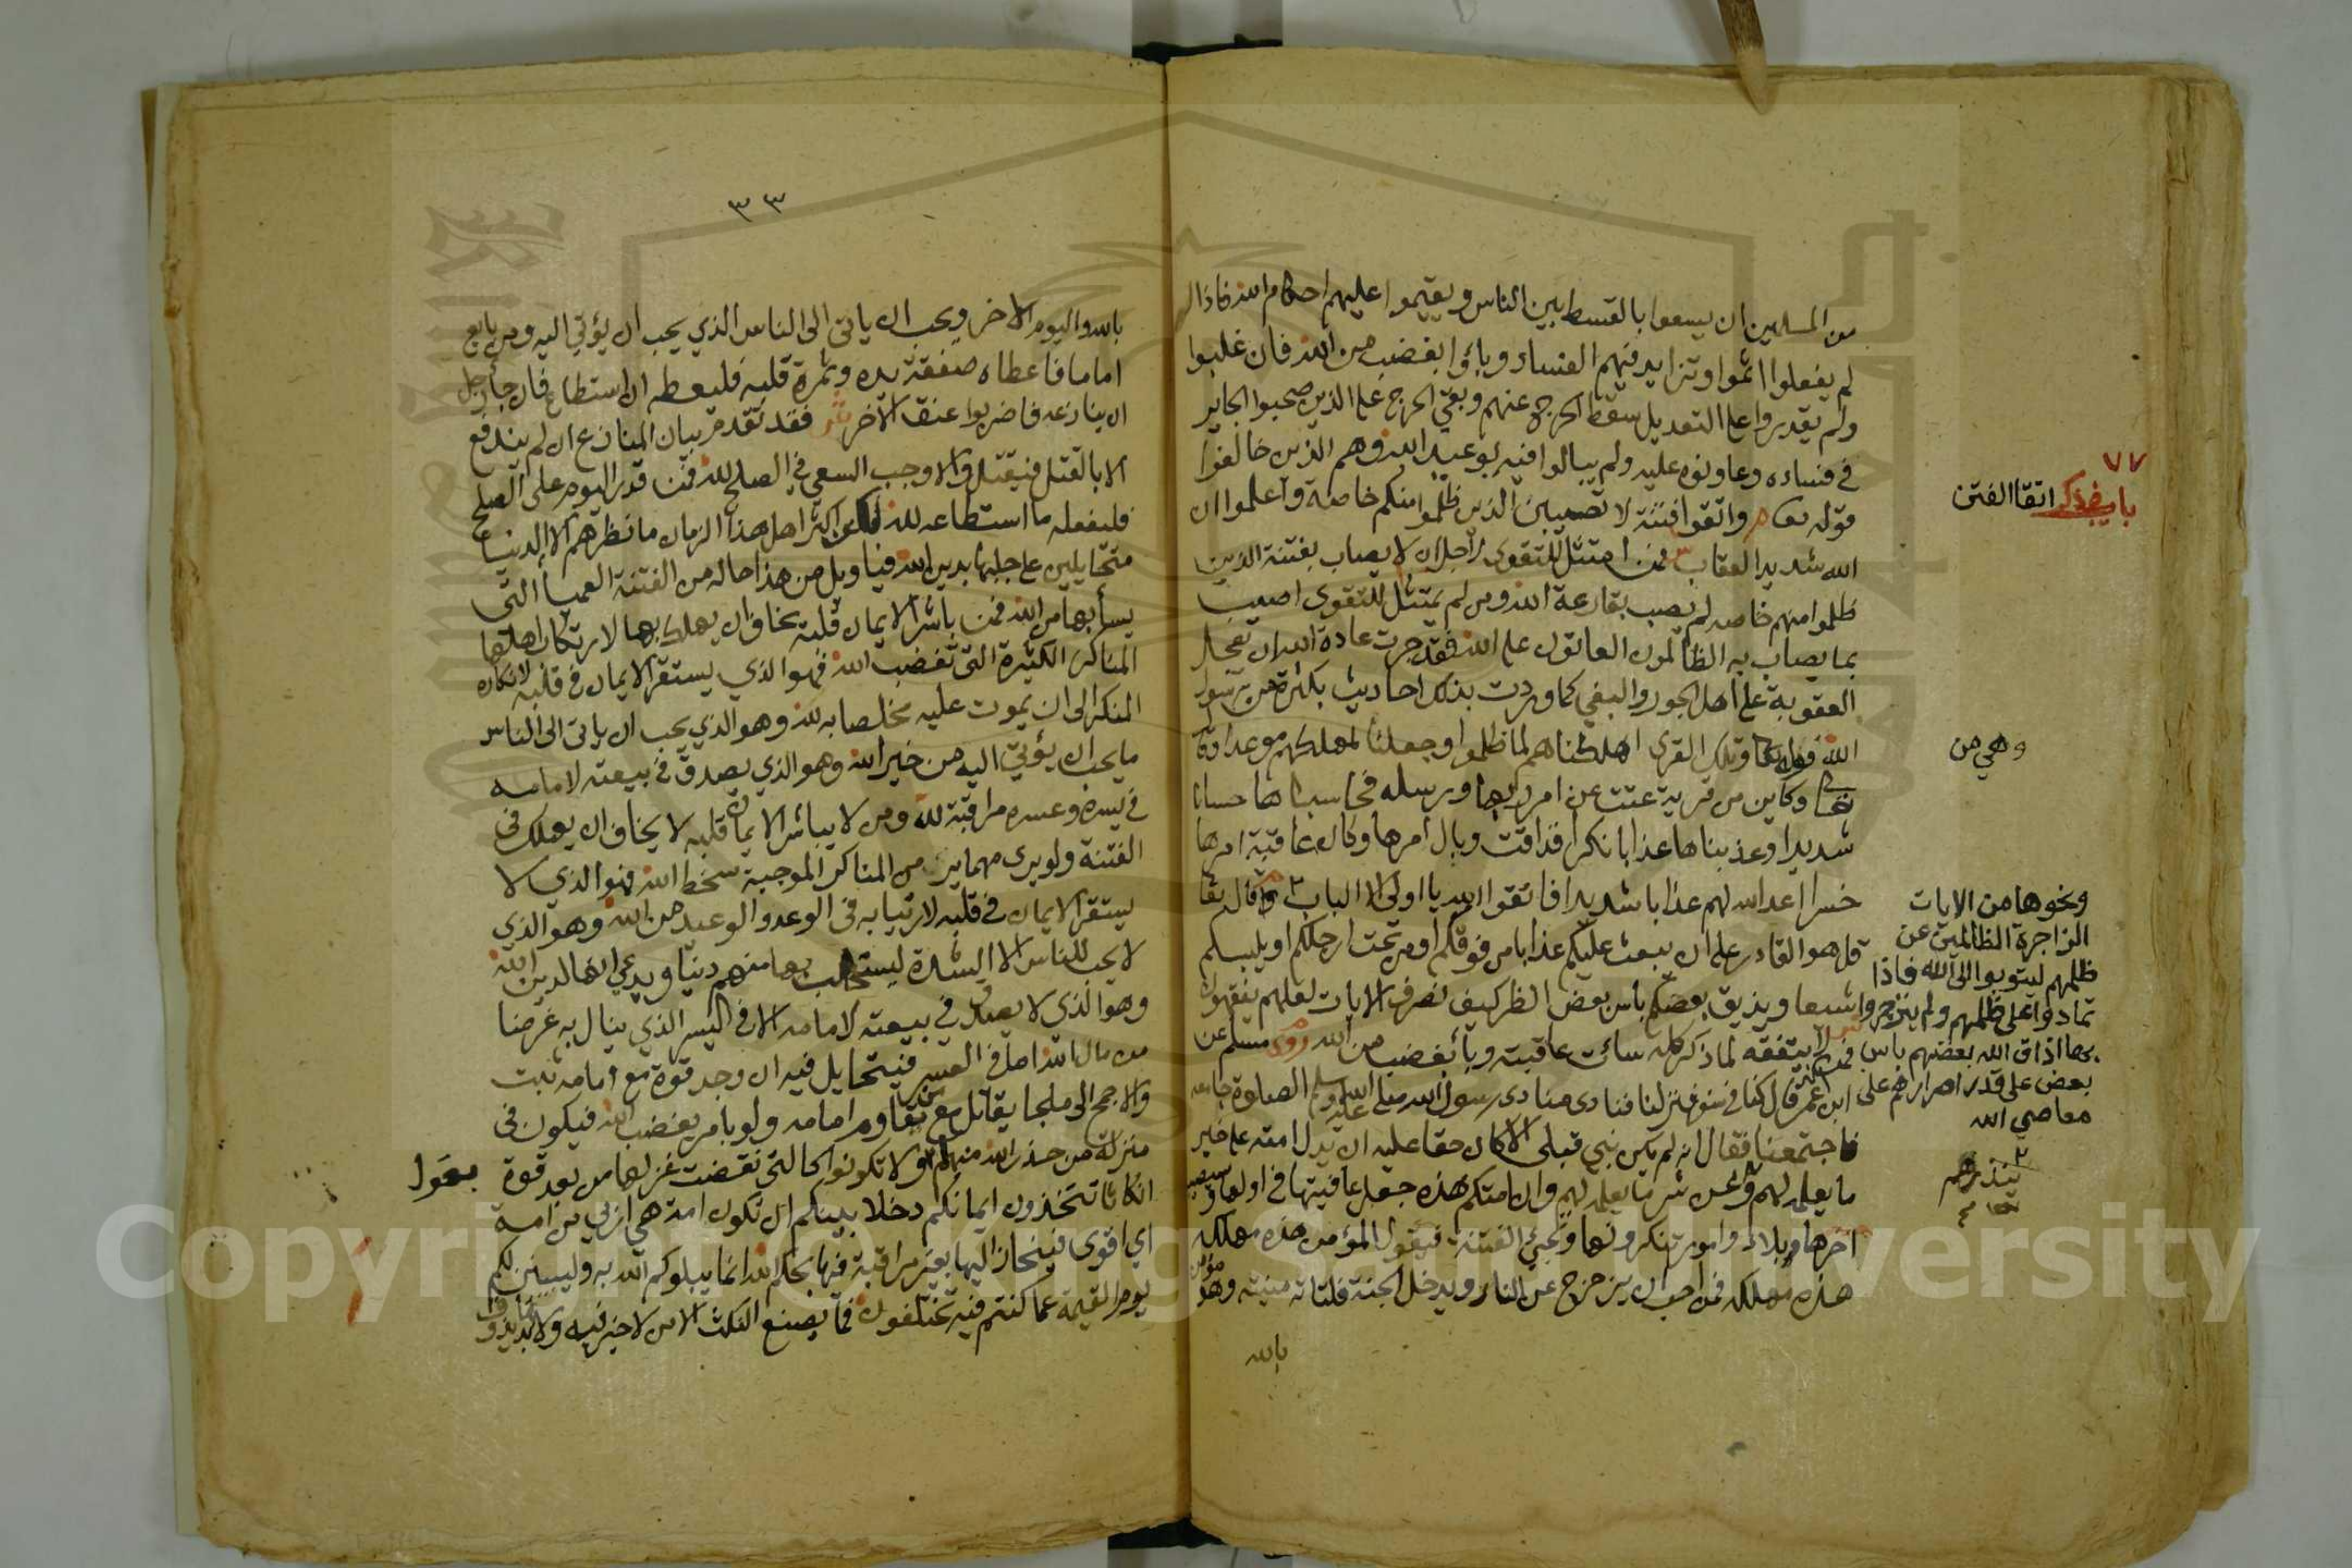 من المسلمين ان يسعوا بالقسط بين الناس ويقيموا عليهم احكام الله فاذا
لم يفعلوا اثموا وتزايد فيهم الفساد وباؤا بغضب من الله فان غلبوا
ولم يقدروا على التعديل سقط الحرج عنهم وبقي الحرج على الذين صحبوا الجاير
في فساده وعاونوه عليه ولم يبالوا فيه بوعيد الله وهم الذين خالفوا
باب في ذكر اتقا الفتن
٧٧
قوله واتقوا فتنة لا تصيبن الذين ظلموا منكم خاصة واعلموا ان
الله شديد العقاب فمن امتثل للتقوى لا يصاب بفتنة الذين
ظلموا منهم خاصه لم يصب بقارعة الله ومن لم يمتثل للتقوى اصيب
بما يصاب به الظالمون العاتون على الله فقد جرت عادة الله ان تعجل
العقوبة على اهل الجور والبغي كما وردت بذلك احاديث بكثرة عن رسول
الله وتلك القرى اهلكناهم لما ظلموا وجعلنا لمهلكهم موعدا وقا
وهي من
وكاين من قرية عتت عن امر ربها ورسله فحاسبناها حسابا
شديدا وعذبناها عذابا نكرا فذاقت وبال امرها وكان عاقبة امرها
خسرا اعد الله لهم عذابا شديدا فاتقوا الله يا اولى الالباب وقال تعا
قل هو القادر على ان يبعث عليكم عذابا من فوقكم او من تحت ارجلكم او يلبسكم
شيعا ويذيق بعضكم باس بعض انظر كيف نصرف الايات لعلهم يفقهون
ونحوها من الايات
الزاجرة الظالمين عن
ظلمهم ليتوبوا الى الله فاذا
تمادوا على ظلمهم ولم ينزجروا
بها اذاق الله بعضهم باس
بعض على قدر اصرارهم على
معاصي الله
لا يتفقه لما ذكر كله سائت عاقبته وبأ بغضب من الله روى مسلم عن
ابن عمر قال كنا في سفر فنزلنا فنادى منادى رسول الله صلى الله عليه وسلم الصلوة جامعه
فاجتمعنا فقال انه لم يكن نبي قبلى الا كان حقا عليه ان يدل امته على خير
ما يعلمه لهم شر ما يعلمه لهم وان امتكم هذه جعل عافيتها في اولها وسيصيب
ينذرهم
اخرها بلاء وامور تنكرونها وتجئ الفتنة فيقول المؤمن هذه مهلكه
هذه مهلكه فمن احب ان يزحزح عن النار ويدخل الجنة فلتاته منيته وهو مؤمن
بالله
٣٣
بالله واليوم الاخر ويحب ان ياتى الى الناس الذي يحب ان يؤتي اليه ومن بايع
اماما فاعطاه صفقة يده وثمرة قلبه فليعطه ان استطاع فان جأ رجل
ان ينازعه فاضربوا عنق الاخر فقد تقدم بيان المنازع ان لم يندفع
الا بالقتل فيقتل والا وجب السعي في الصلح لله فمن قدر اليوم على الصلح
فليفعله ما استطاعه لله اكثر اهل هذا الزمان ما نظرهم الا الدنيا
متحايلين على جلبها بدين الله فيا ويل من هذا حاله من الفتنة العميأ التى
يسأ بها من الله فمن باشر الايمان قلبه يخاف ان يهلك بها لارتكاب اهلها
المناكر الكثيرة التى تغضب الله فهو الذي يستقر الايمان في قلبه لانكاره
المنكر الى ان يموت عليه مخلصا به لله وهو الذي يحب ان ياتى الى الناس
ما يحب ان يؤتي اليه من خير الله وهو الذي يصدق في بيعته لامامه
في يسره وعسره مراقبة لله ومن لا يباشر الايمان قلبه لا يخاف ان يهلك في
الفتنة ولو يرى مهما يرى من المناكر الموجبة سخط الله فهو الذي لا
يستقر الايمان في قلبه لارتيابه في الوعد والوعيد من الله وهو الذي
لا يحب للناس الا الشدة ليستجلب بها منهم دنيا ويدعي انها لدين الله
وهو الذي لا يصدق في بيعته لامامه الا في اليسر الذي ينال به غرضا
من مال الله اما في العسر فيتحايل فيه ان وجد قوة مع امامه ثبت
والا جمح الى ملجا يقاتل مع من يقاوم امامه ولو بامر يغضب الله فيكون في
منزلة من حذر الله منهم بقوله ولا تكونوا كالتى نقضت غزلها من بعد قوة
بقول
انكاثا تتخذون ايمانكم دخلا بينكم ان تكون امة هي اربي من امة
اي اقوى فينحاز اليها بغير مراقبة فيها بحكم الله انما يبلوكم الله به وليبينن لكم
يوم القيمة ما كنتم فيه تختلفون فما يصنع النكث الا من لا خير فيه ولا